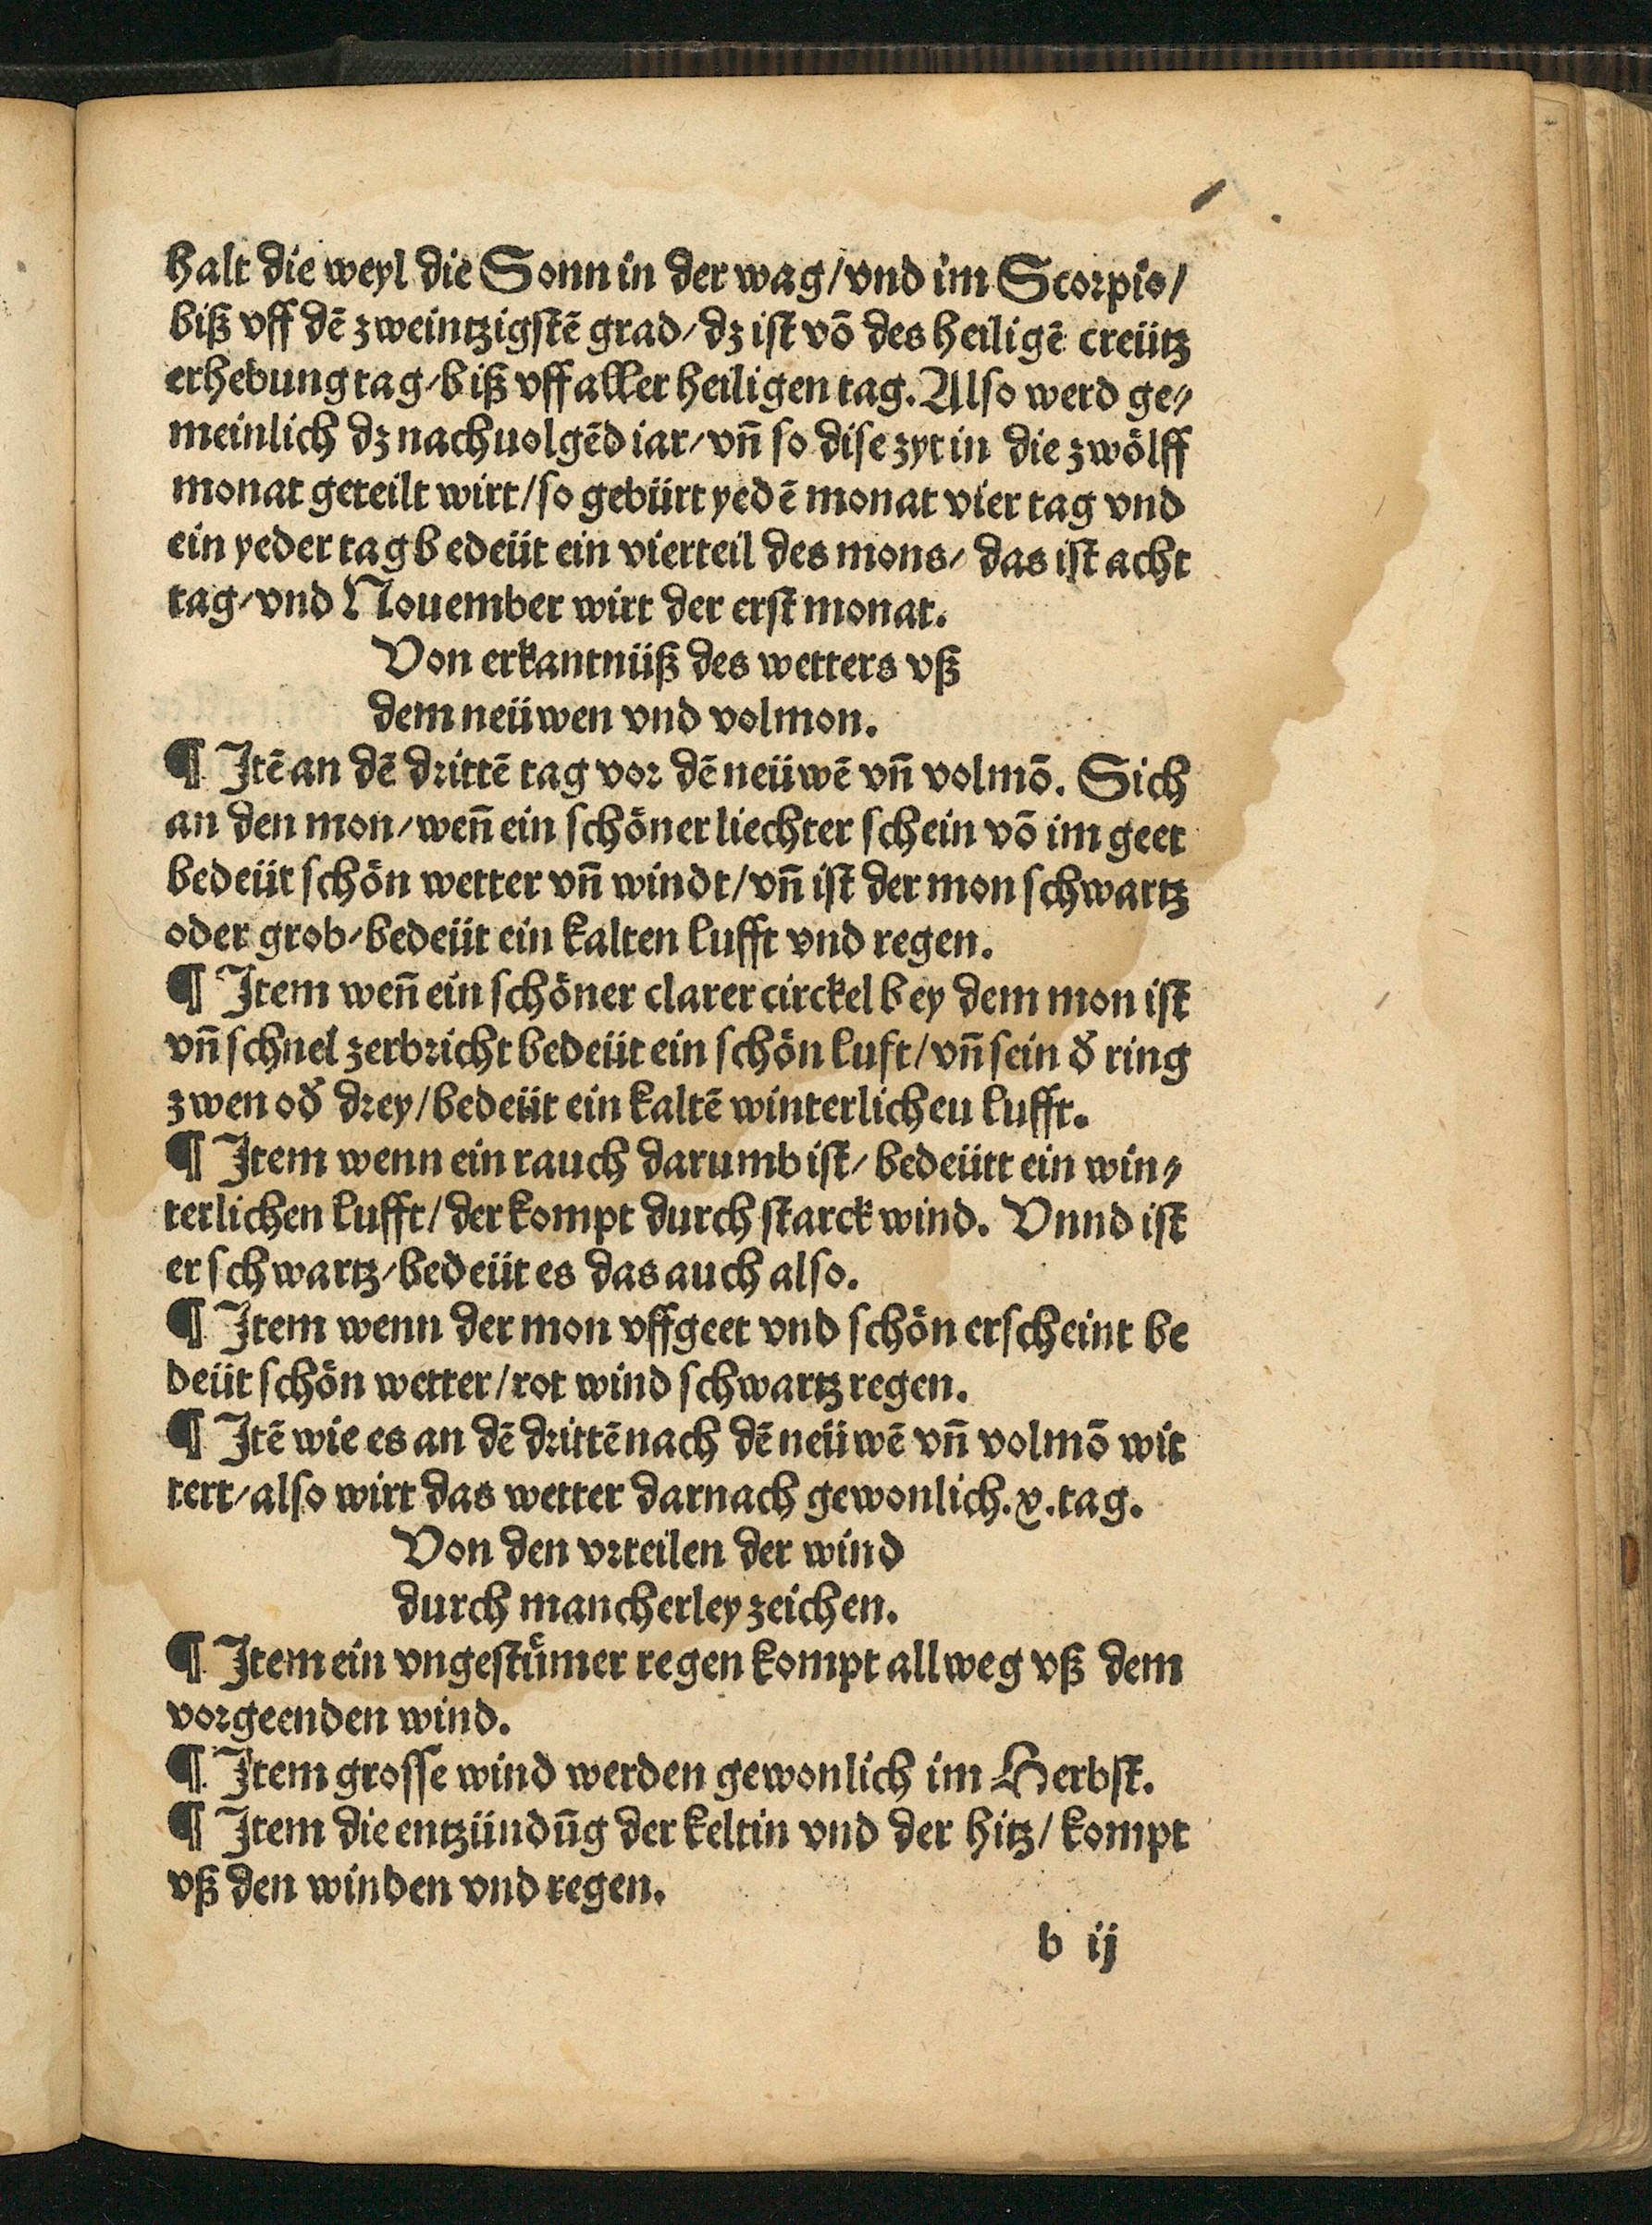 halt die weyl die Sonn in der wag/vnd im Scorpio/
biß vff dē zweintzigstē grad/dz ist vō des heiligē creütz
erhebung tag/biß vff aller heiligen tag. Also werd ge⸗
meinlich dz nachuolgēd iar/vn̄ so dise zyt in die zwölff
monat geteilt wirt/so gebürt yedē monat vier tag vnd
ein yeder tag bedeüt ein vierteil des mons/das ist acht
tag/vnd Nouember wirt der erst monat.
Von erkantnüß des wetters vß
dem neüwen vnd volmon.
¶ Itē an dē drittē tag vor dē neüwē vn̄ volmō. Sich
an den mon/wen̄ ein schöner liechter schein vō im geet
bedeüt schön wetter vn̄ windt/vn̄ ist der mon schwartz
oder grob/bedeüt ein kalten lufft vnd regen.
¶ Item wen̄ ein schöner clarer circkel bey dem mon ist
vn̄ schnel zerbricht bedeüt ein schön luft/vn̄ sein d̄ ring
zwen od̄ drey/bedeüt ein kaltē winterlicheu lufft.
¶ Item wenn ein rauch darumb ist/bedeütt ein win⸗
terlichen lufft/der kompt durch starck wind. Vnnd ist
er schwartz/bedeüt es das auch also.
¶ Item wenn der mon vffgeet vnd schön erscheint be
deüt schön wetter/rot wind schwartz regen.
¶ Itē wie es an dē drittē nach dē neüwē vn̄ volmō wit
tert/also wirt das wetter darnach gewonlich.x.tag.
Von den vrteilen der wind
durch mancherley zeichen.
¶ Item ein vngestümer regen kompt allweg vß dem
vorgeenden wind.
¶ Item grosse wind werden gewonlich im Herbst.
¶ Item die entzündūg der keltin vnd der hitz/kompt
vß den winden vnd regen.
b ij